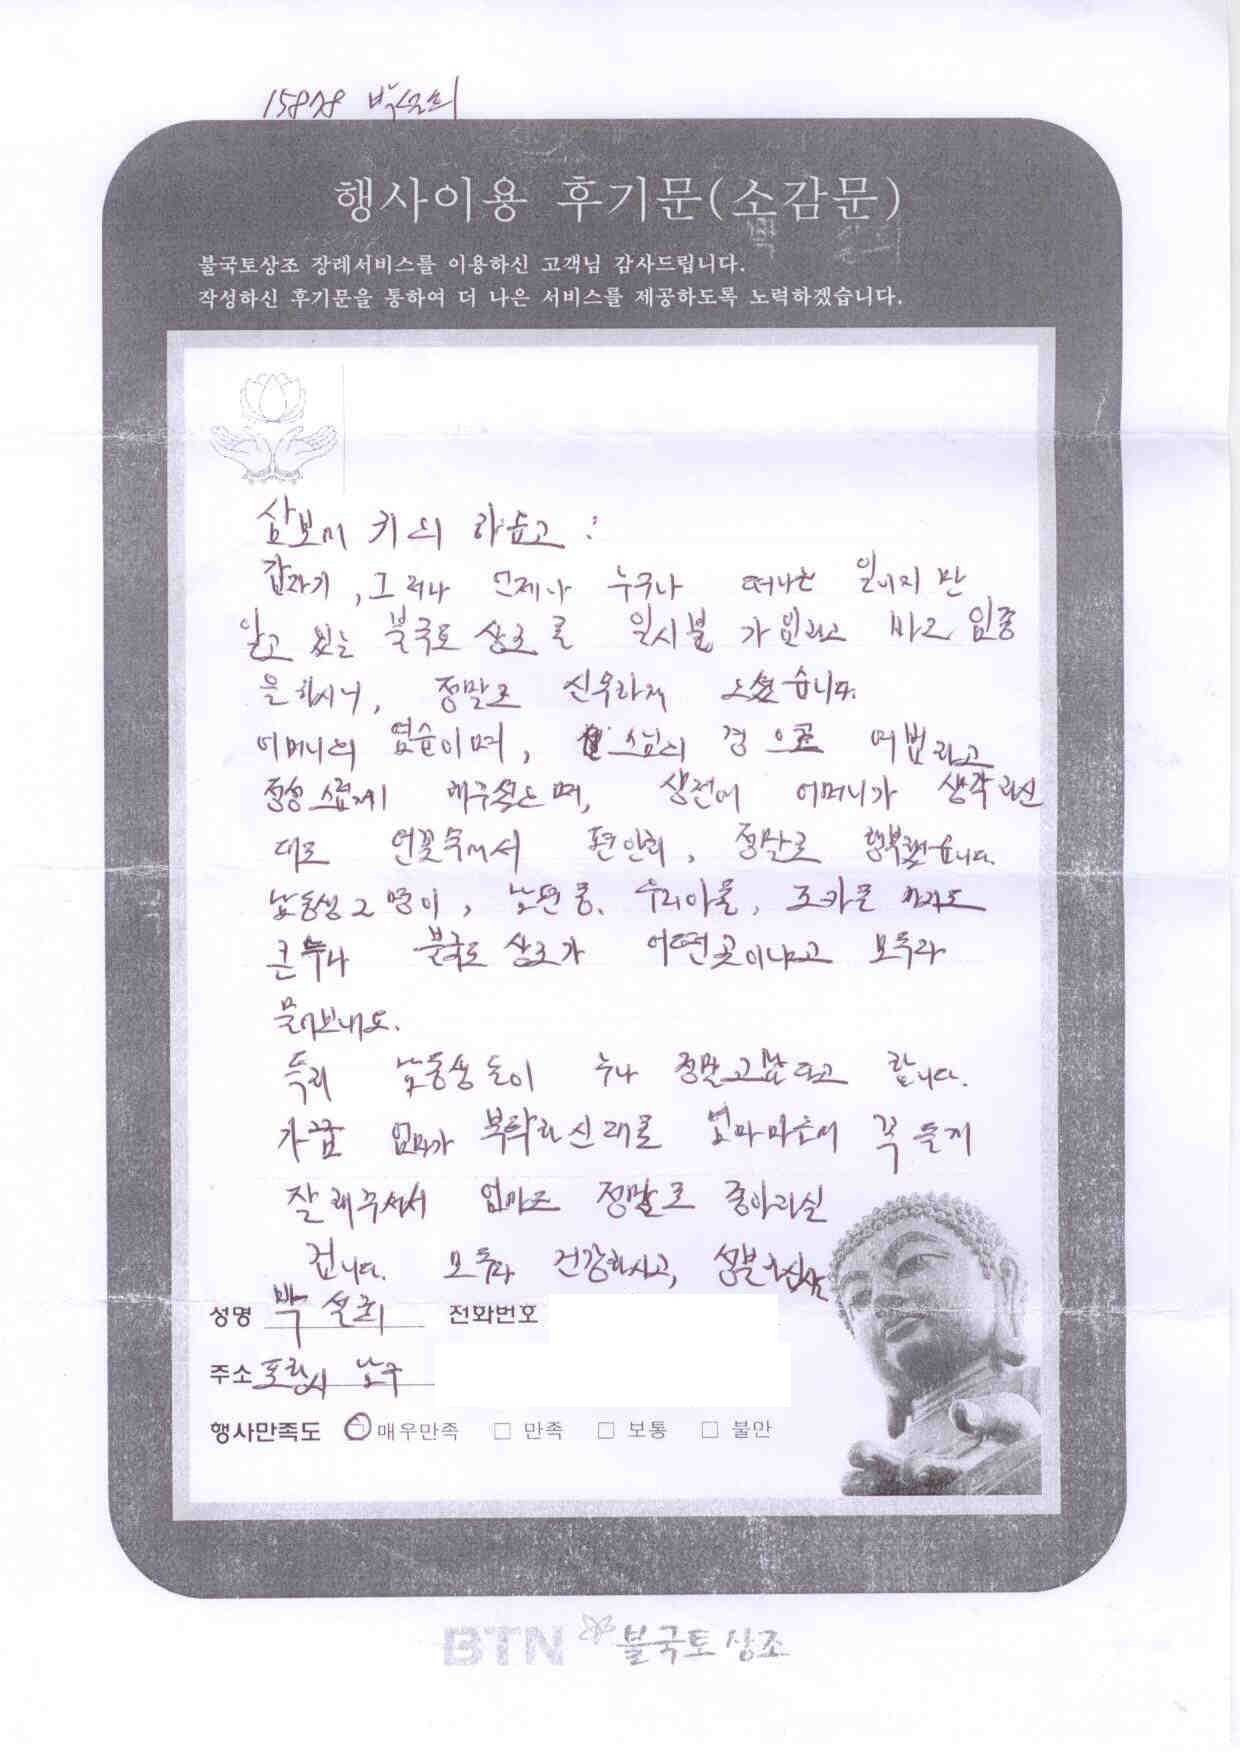 박설희
행사이용 후기문(소감문)
불국토상조 장례서비스를 이용하신 고객님 감사드립니다.
작성하신 후기문을 통하여 더 나은 서비스를 제공하도록 노력하겠습니다.
삼보에 귀의 하옵고 :
갑자기, 그러나 언제나 누구나 떠나는 일이지만
알고 있는 불국토 상조를 일시불 가입하고 바로 임종
을 하시니, 정말로 신우하게 오셨습니다.
어머니의 염습이며, 스님의 경 으로 여법하고
정성스럽게 해주셨으며, 생전에 어머니가 생각하신
대로 연꽃속에서 편안히, 정말로 행복했습니다.
남동생 2명이, 남편 우리아들, 조카들 까지도
큰누나 불국토 상조가 어떤곳이냐고 모두다
물어보네요.
특히 남동생들이 누나 정말고맙다고 합니다.
가끔 엄마가 부탁하신대로 엄마마음에 꼭 들게
잘해주셔서 엄마도 정말로 좋아하실
겁니다. 모두다 건강하시고, 성불하십시
성명 박설희 전화번호
주소 포항시 남구
행사만족도 매우만족 □ 만족 □ 보통 □ 불만
BTN 불국토상조